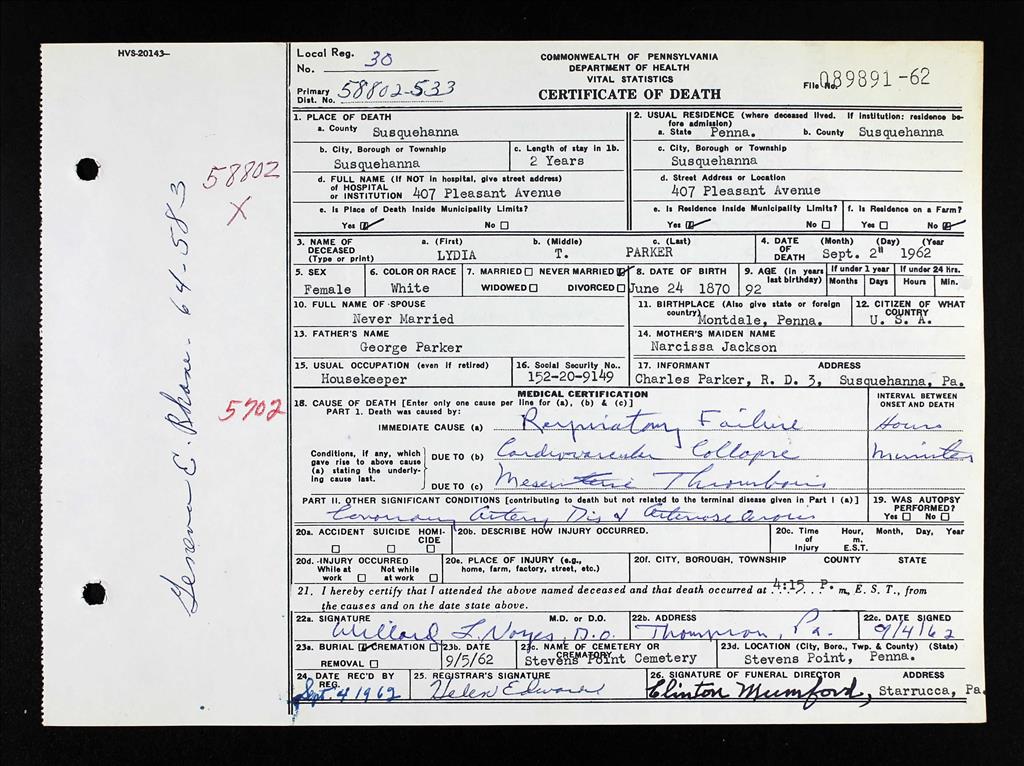 HVS-20143-
Local Reg. No. 30
COMMONWEALTH OF PENNSYLVANIA
DEPARTMENT OF HEALTH
VITAL STATISTICS
CERTIFICATE OF DEATH
Primary Dist. No. 58802-533
File No. 089891-62
58802
X
5702
64-583
1. PLACE OF DEATH
a. County Susquehanna
b. City, Borough or Township
Susquehanna
c. Length of stay in 1b.
2 Years
d. FULL NAME (If NOT in hospital, give street address)
of HOSPITAL
or INSTITUTION 407 Pleasant Avenue
e. Is Place of Death Inside Municipality Limits?
Yes No
2. USUAL RESIDENCE (where deceased lived. If institution: residence be-
fore admission)
a. State Penna. b. County Susquehanna
c. City, Borough or Township
Susquehanna
d. Street Address or Location
407 Pleasant Avenue
e. Is Residence Inside Municipality Limits?
Yes No
f. Is Residence on a Farm?
Yes No
3. NAME OF DECEASED (Type or print)
a. (First) b. (Middle) c. (Last)
LYDIA T. PARKER
4. DATE OF DEATH (Month) (Day) (Year)
Sept. 2" 1962
5. SEX
Female
6. COLOR OR RACE
White
7. MARRIED NEVER MARRIED
WIDOWED DIVORCED
8. DATE OF BIRTH
June 24 1870
9. AGE (in years last birthday)
92
If under 1 year
Months Days
If under 24 Hrs.
Hours Min.
10. FULL NAME OF SPOUSE
Never Married
11. BIRTHPLACE (Also give state or foreign country)
Montdale, Penna.
12. CITIZEN OF WHAT COUNTRY
U. S. A.
13. FATHER'S NAME
George Parker
14. MOTHER'S MAIDEN NAME
Narcissa Jackson
15. USUAL OCCUPATION (even if retired)
Housekeeper
16. Social Security No.
152-20-9149
17. INFORMANT ADDRESS
Charles Parker, R. D. 3, Susquehanna, Pa.
MEDICAL CERTIFICATION
18. CAUSE OF DEATH [Enter only one cause per line for (a), (b) & (c)]
PART 1. Death was caused by:
INTERVAL BETWEEN
ONSET AND DEATH
IMMEDIATE CAUSE (a) Respiratory Failure Hours
Conditions, if any, which
gave rise to above cause
(a) stating the underly-
ing cause last.
DUE TO (b) Cardiovascular Collapse Minutes
DUE TO (c) Mesenteric Thrombosis
PART II. OTHER SIGNIFICANT CONDITIONS [contributing to death but not related to the terminal disease given in Part I (a)]
Coronary Artery Dis & Arteriosclerosis
19. WAS AUTOPSY PERFORMED?
Yes No
20a. ACCIDENT SUICIDE HOMI-
CIDE
20b. DESCRIBE HOW INJURY OCCURRED.
20c. Time of Injury Hour, Month, Day, Year
m.
E.S.T.
20d. INJURY OCCURRED
While at work Not while at work
20e. PLACE OF INJURY (e.g.,
home, farm, factory, street, etc.)
20f. CITY, BOROUGH, TOWNSHIP COUNTY STATE
21. I hereby certify that I attended the above named deceased and that death occurred at 4:15 P. m., E. S. T., from
the causes and on the date state above.
22a. SIGNATURE M.D. or D.O.
Willard L. Noyes, D.O.
22b. ADDRESS
Thompson, Pa.
22c. DATE SIGNED
9/4/62
23a. BURIAL CREMATION
REMOVAL
23b. DATE
9/5/62
23c. NAME OF CEMETERY OR CREMATORY
Stevens Point Cemetery
23d. LOCATION (City, Boro., Twp. & County) (State)
Stevens Point, Penna.
24. DATE REC'D BY REG.
Sept. 4 1962
25. REGISTRAR'S SIGNATURE
Helen Edwards
26. SIGNATURE OF FUNERAL DIRECTOR ADDRESS
Clinton Mumford, Starrucca, Pa.